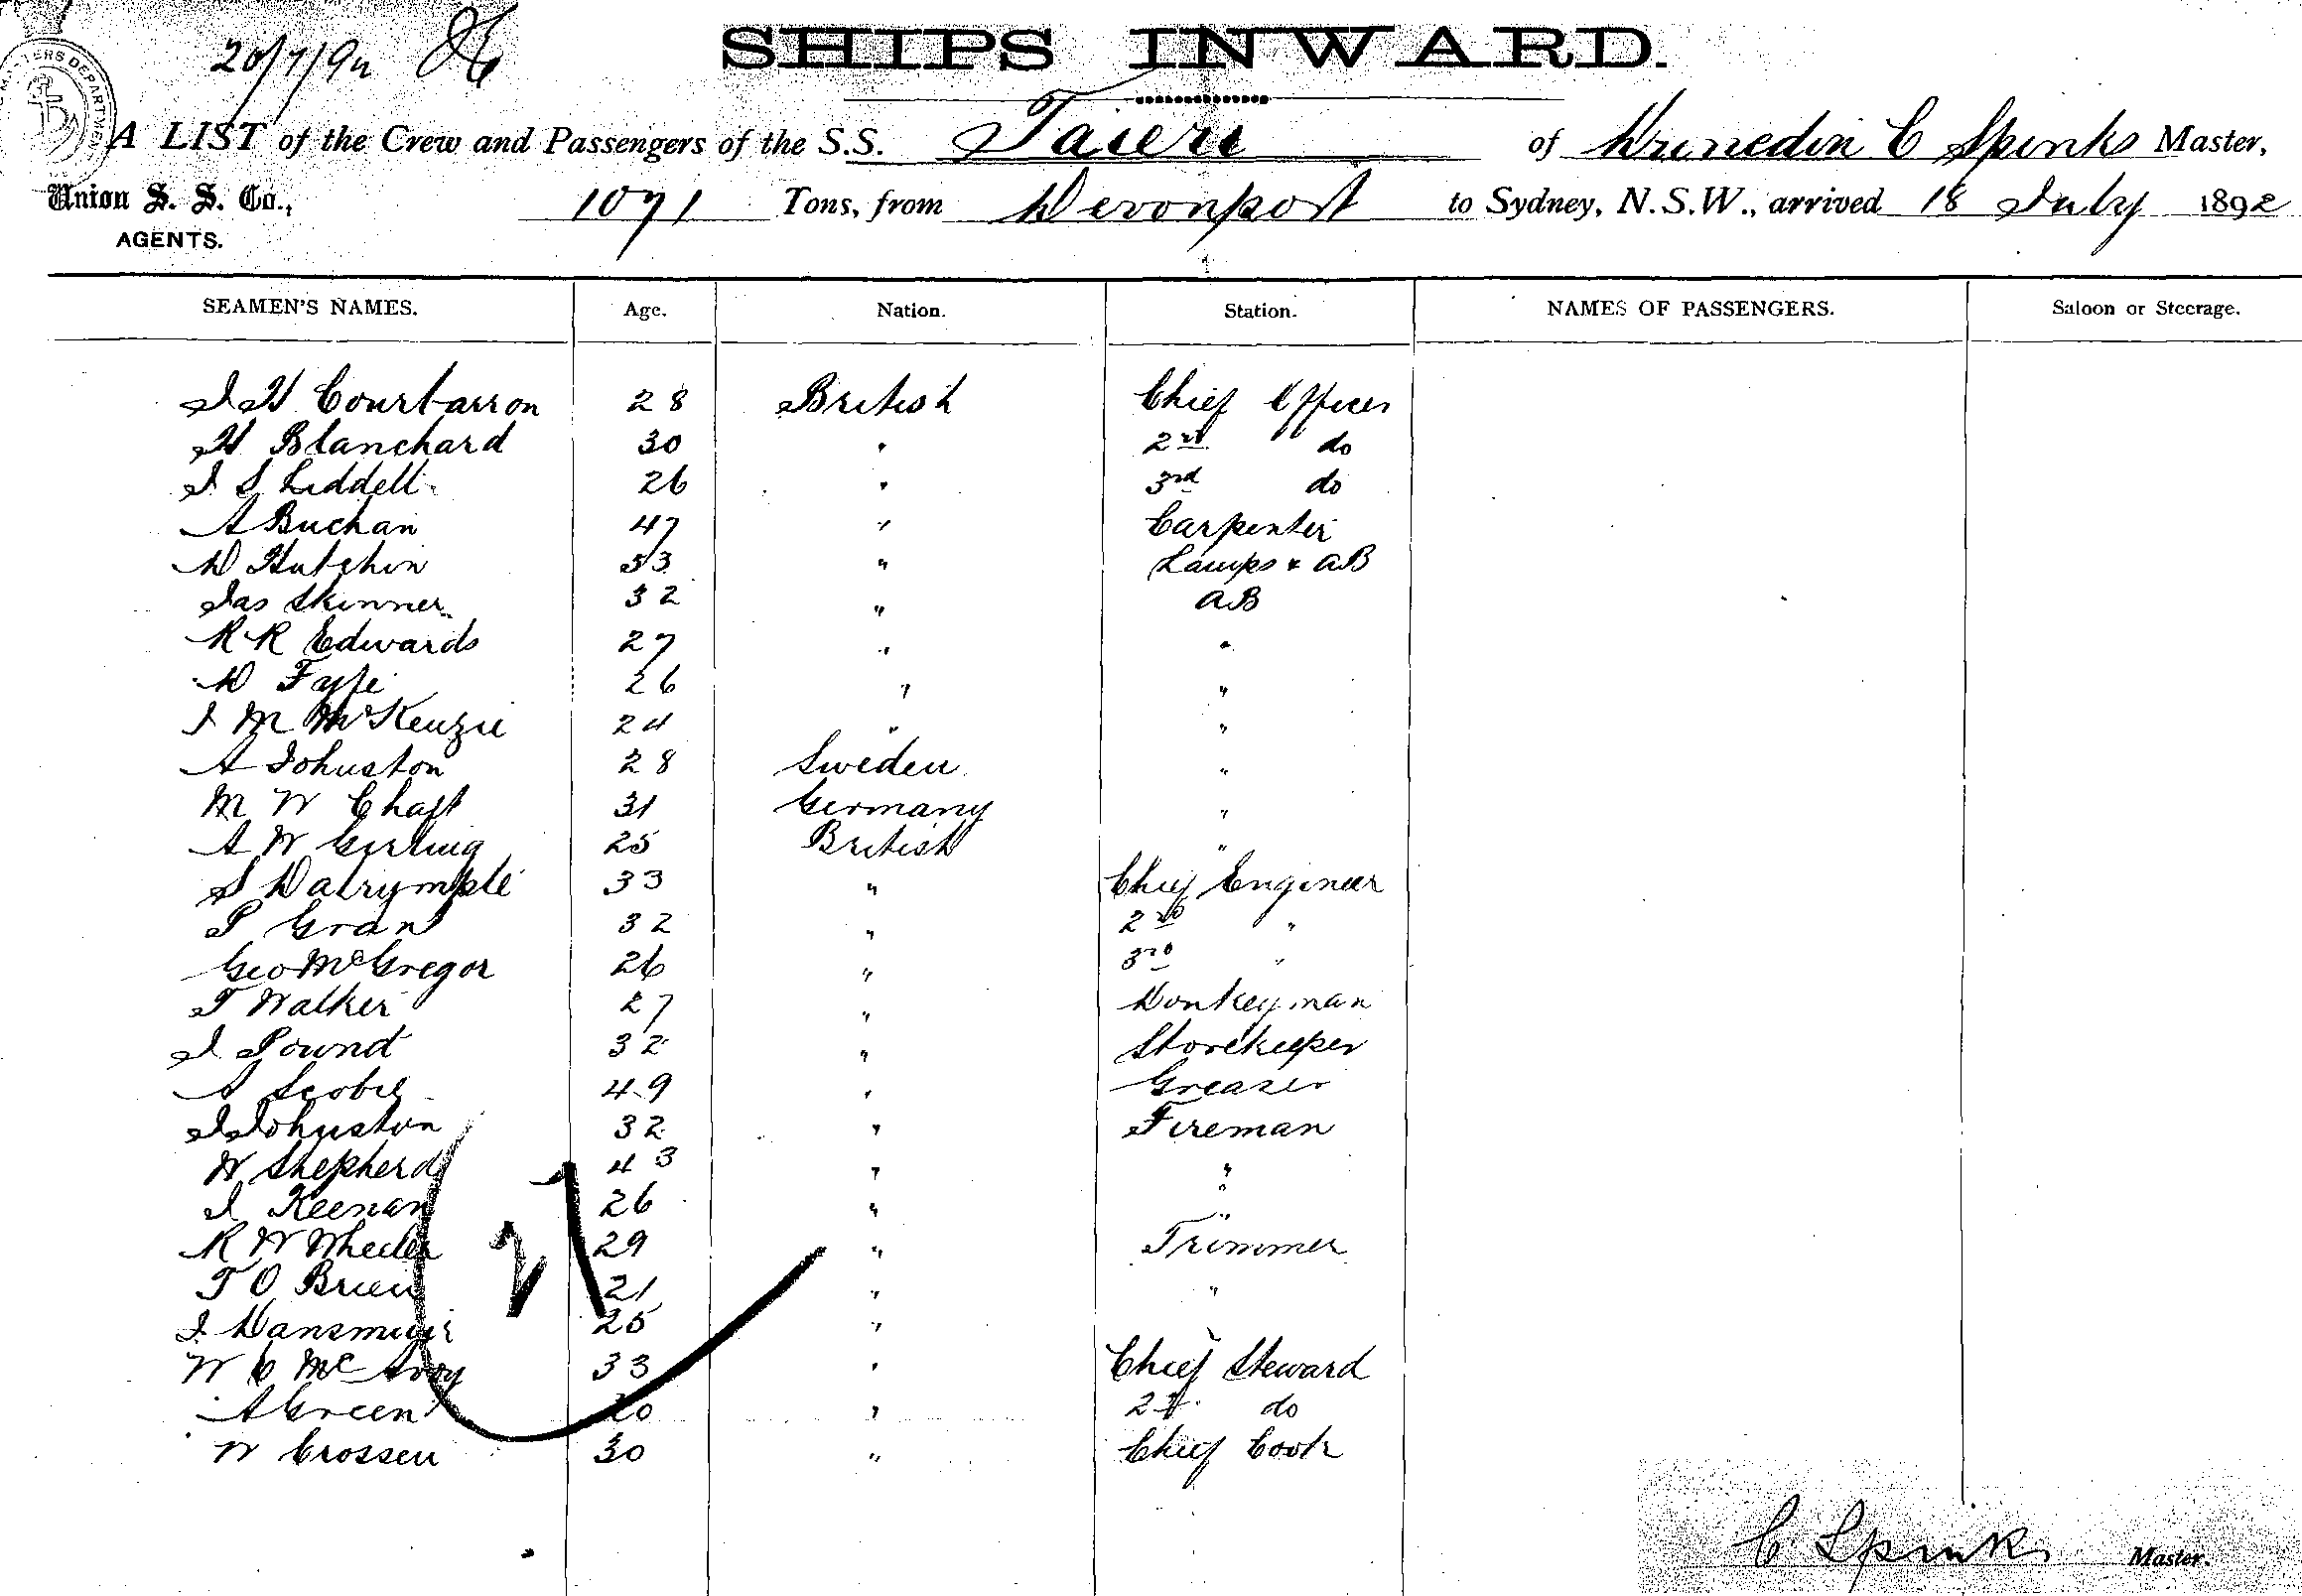 20/7/92 86
SHIPS INWARD.
A LIST of the Crew and Passengers of the S.S. Taieri of Dunedin C Spinks Master,
Union S. S. Co., 1071 Tons, from Devonport to Sydney, N.S.W., arrived 18 July 1892
AGENTS.
SEAMEN'S NAMES. Age. Nation. Station. NAMES OF PASSENGERS. Saloon or Steerage.
J H Courbarron 28 British Chief Officer
H Blanchard 30 " 2nd do
J S Liddell 26 " 3rd do
A Buchan 47 " Carpenter
D Hutchin 53 " Lamps & AB
Jas Skinner 32 " AB
R R Edwards 27 " "
D Fyffe 26 " "
J M McKenzie 24 " "
A Johnston 28 Sweden "
M W Chaft 31 Germany "
A W Girling 25 British "
S Dalrymple 33 " Chief Engineer
P Grant 32 " 2nd "
Geo McGregor 26 " 3rd "
T Walker 27 " Donkeyman
J Pound 32 " Storekeeper
A Scobie 49 " Greaser
J Johnston 32 " Fireman
W Shepherd 43 " "
J Keenan 26 " "
R W Wheeler 29 " Trimmer
T O Brien 21 " "
J Dansmuir 25 "
W C McAvoy 33 " Chief Steward
A Green 20 " 2nd do
W Crossen 30 " Chief Cook
C. Spinks Master.